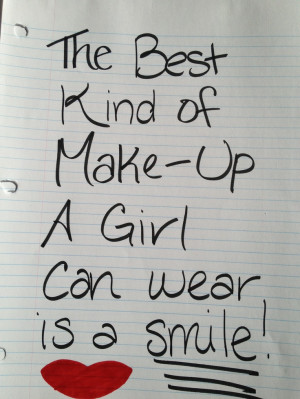 The Best
Kind of
Make-Up
A Girl
Can wear
is a smile!